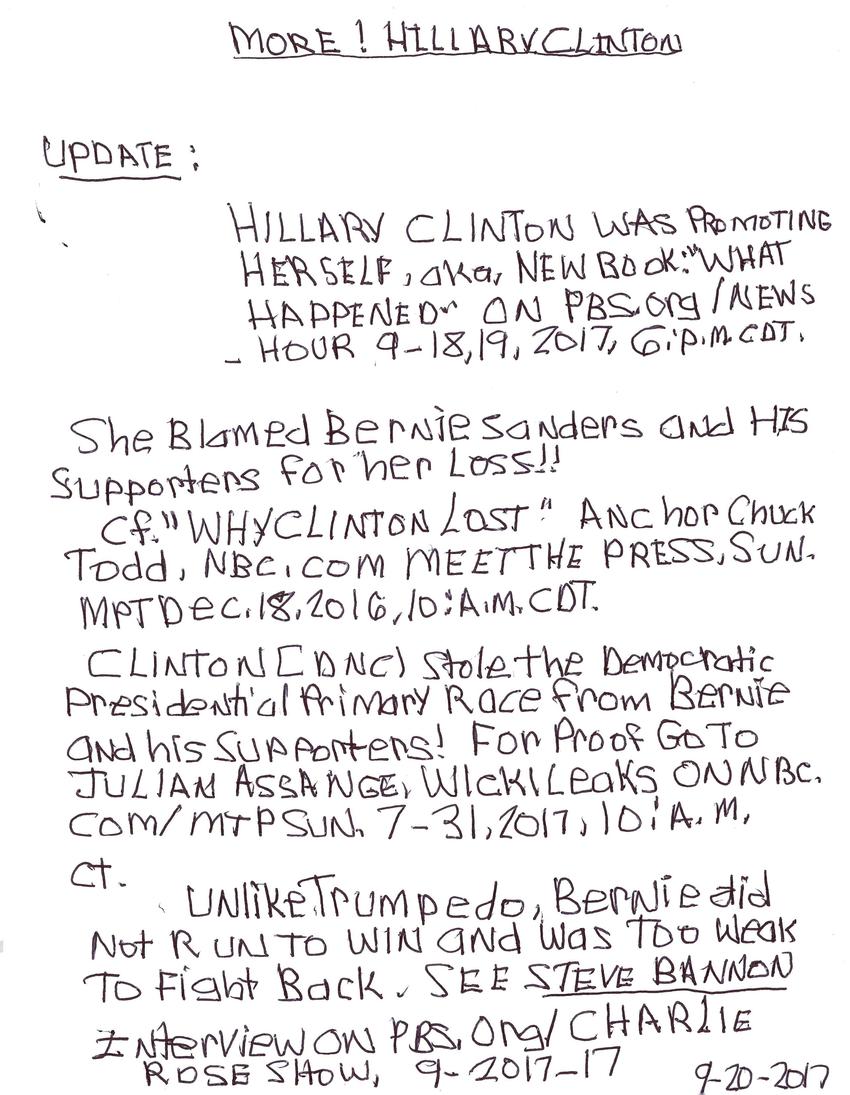 MORE! HILLARYCLINTON
UPDATE:
HILLARY CLINTON WAS PROMOTING
HERSELF, aka, NEW BOOK:"WHAT
HAPPENED" ON PBS.org/NEWS
- HOUR 9-18,19, 2017, 6:p.M. CDT.
She Blamed Bernie Sanders and HIS
Supporters for her Loss!!
Cf."WHYCLINTON LOST" ANChor Chuck
Todd, NBC.com MEETTHE PRESS, SUN.
MPT Dec.18,2016,10:A.M.CDT.
CLINTON [DNC) stole the Democratic
Presidential Primary Race from Bernie
and his Supporters! For Proof Go To
JULIAM ASSANGE, WICKILeaks ON NBC.
COM/MTP SUN. 7-31,2017, 10:A.M.
CT.
UNlike Trumpedo, Bernie did
Not RUN TO WIN and was Too Weak
To Fight Back. SEE STEVE BANNON
INterview ON PBS.Org/CHARLIE
ROSE SHOW, 9-2017-17
9-20-2017